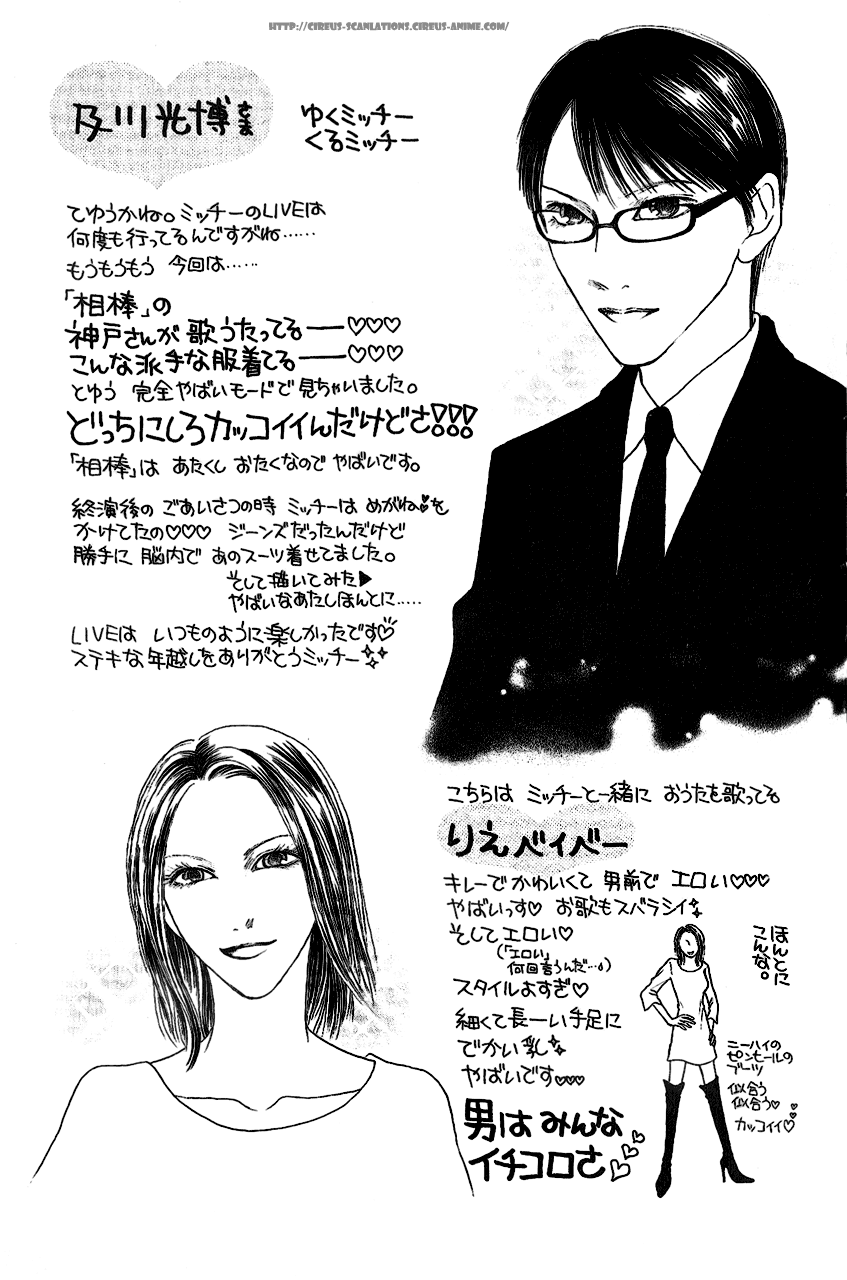 HTTP://CIREUS-SCANLATIONS.CIREUS-ANIME.COM/
及川光博さま
ゆくミッチー
くるミッチー
てゆうかね。ミッチーのLIVEは
何度も行ってるんですがね……
もうもうもう 今回は……
「相棒」の
神戸さんが歌うたってるー♡♡♡
こんな派手な服着てるー♡♡♡
とゆう 完全やばいモードで見ちゃいました。
どっちにしろカッコイイんだけどさ!!!
「相棒」は あたくし おたくなので やばいです。
終演後の ごあいさつの時 ミッチーは めがね♡を
かけてたの♡♡♡ ジーンズだったんだけど
勝手に 脳内で あのスーツ着せてました。
そして描いてみた▶
やばいなあたしほんとに……
LIVEは いつものように楽しかったです♡
ステキな年越しをありがとうミッチー
こちらは ミッチーと一緒に おうたを歌ってる
りえベイベー
キレーでかわいくて 男前で エロい♡♡♡
やばいっす♡ お歌もスバラシイ
そしてエロい♡
(「エロい」
何回言うんだ…。)
スタイルよすぎ♡
細くて長ーい手足に
でかい乳
やばいです♡♡♡
男はみんな
イチコロさ♡♡♡
ほんとに
こんな。
ニーハイの
ピンヒールの
ブーツ
似合う
似合う♡
カッコイイ♡